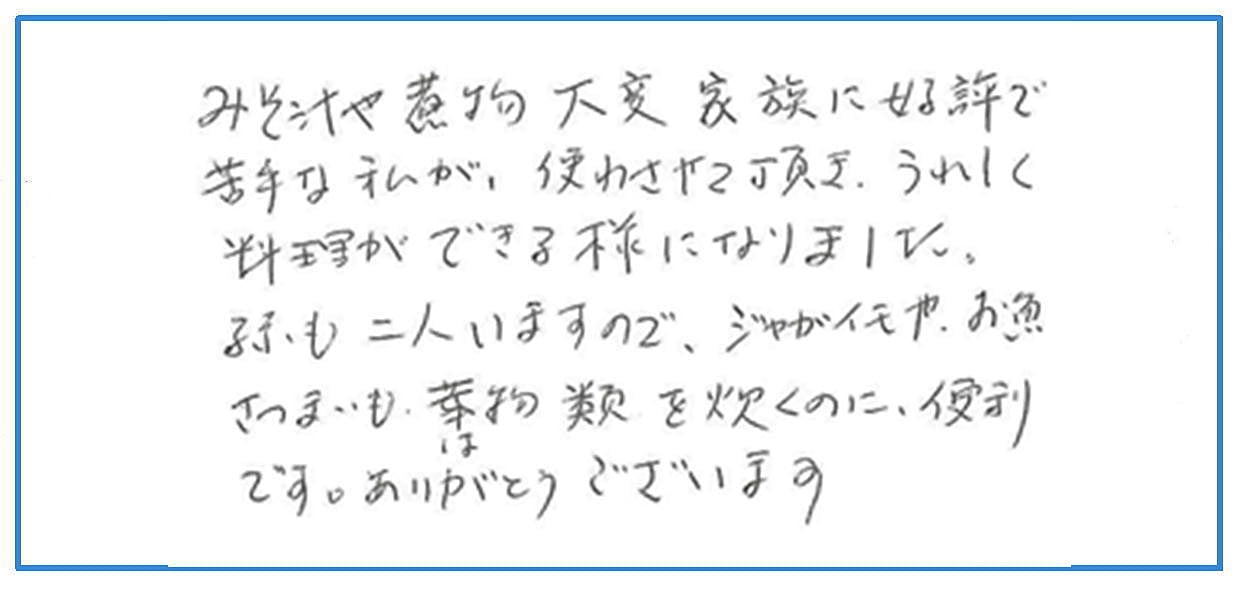 みそ汁や煮物 大変 家族に好評で
苦手な私が、使わさせて頂き、うれしく
料理ができる様になりました。
孫も二人いますので、ジャガイモや、お魚
さつまいも、葉物類を炊くのに、便利
は
です。ありがとうございます